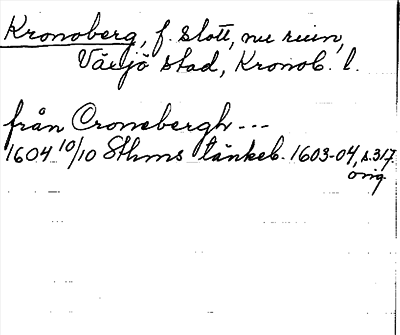 Kronoberg, f. slott, nu ruin,
Växjö stad, Kronob. l.
från Cronebergh ---
1604 10/10 Sthms tänkeb. 1603-04, s.317
orig